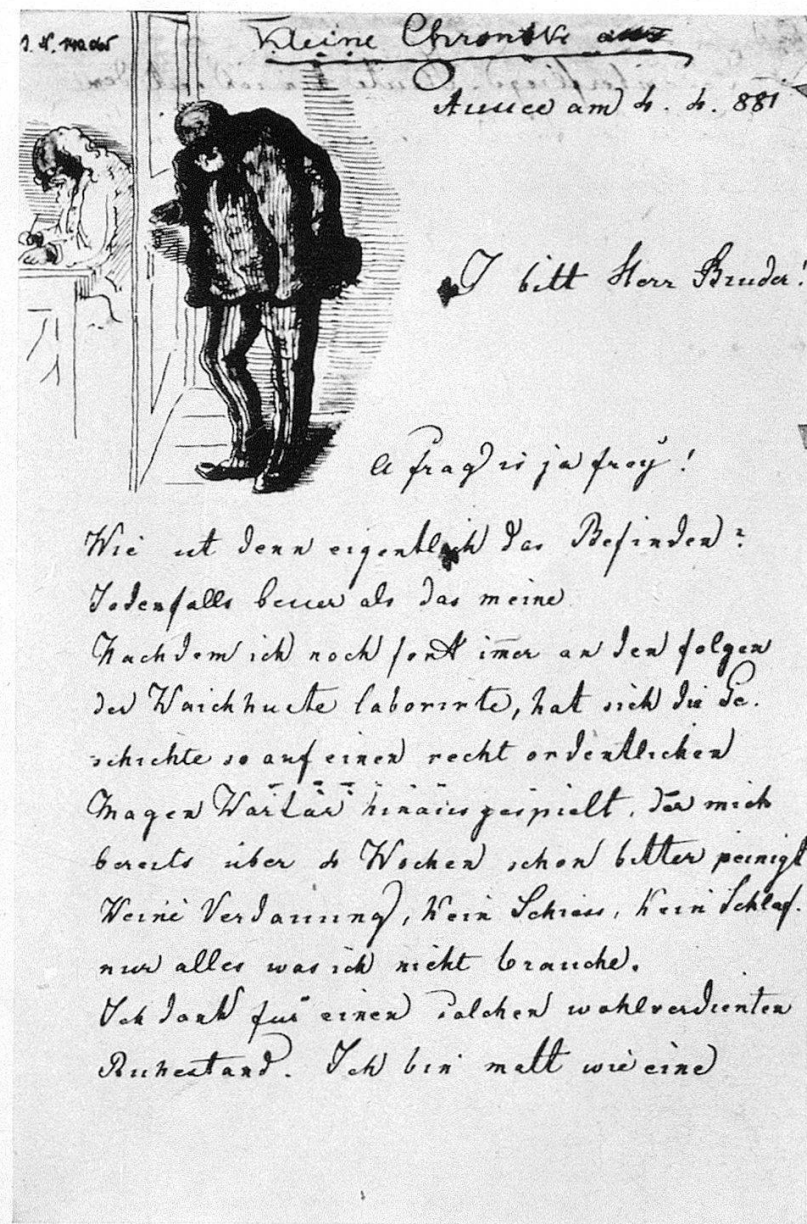 J. N. 140.065
Kleine Chronik aus
Aussee am 4. 4. 881
I bitt Herr Bruder!
A frag is ja frey!
Wie ist denn eigentlich das Befinden?
Jedenfalls besser als das meine
Nachdem ich noch fort im̅er an den folgen
der laborirte, hat sich die Ge-
schichte so auf einen recht ordentlichen
Magen Kartar hinausgespielt, der mich
bereits über 4 Wochen schon bitter peinigt
Keine Verdauung, Kein Schiss, Kein Schlaf.
nur alles was ich nicht brauche.
Ich dank für einen solchen wohlverdienten
Ruhestand. Ich bin matt wie eine